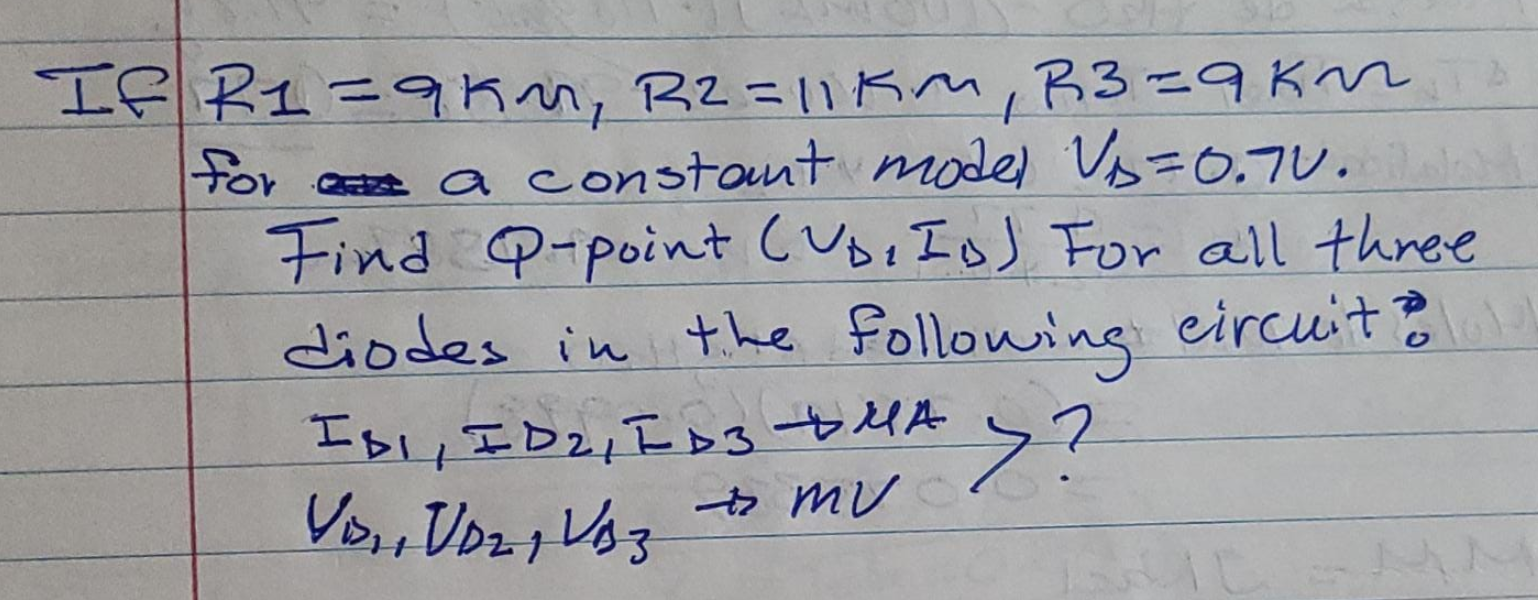 If R1=9KΩ, R2=11KΩ, R3=9KΩ
for a constant model VD=0.7V.
Find Q-point (VD, ID) For all three
diodes in the following circuit?
ID1, ID2, ID3 → μA > ?
VD1, VD2, VD3 → mV